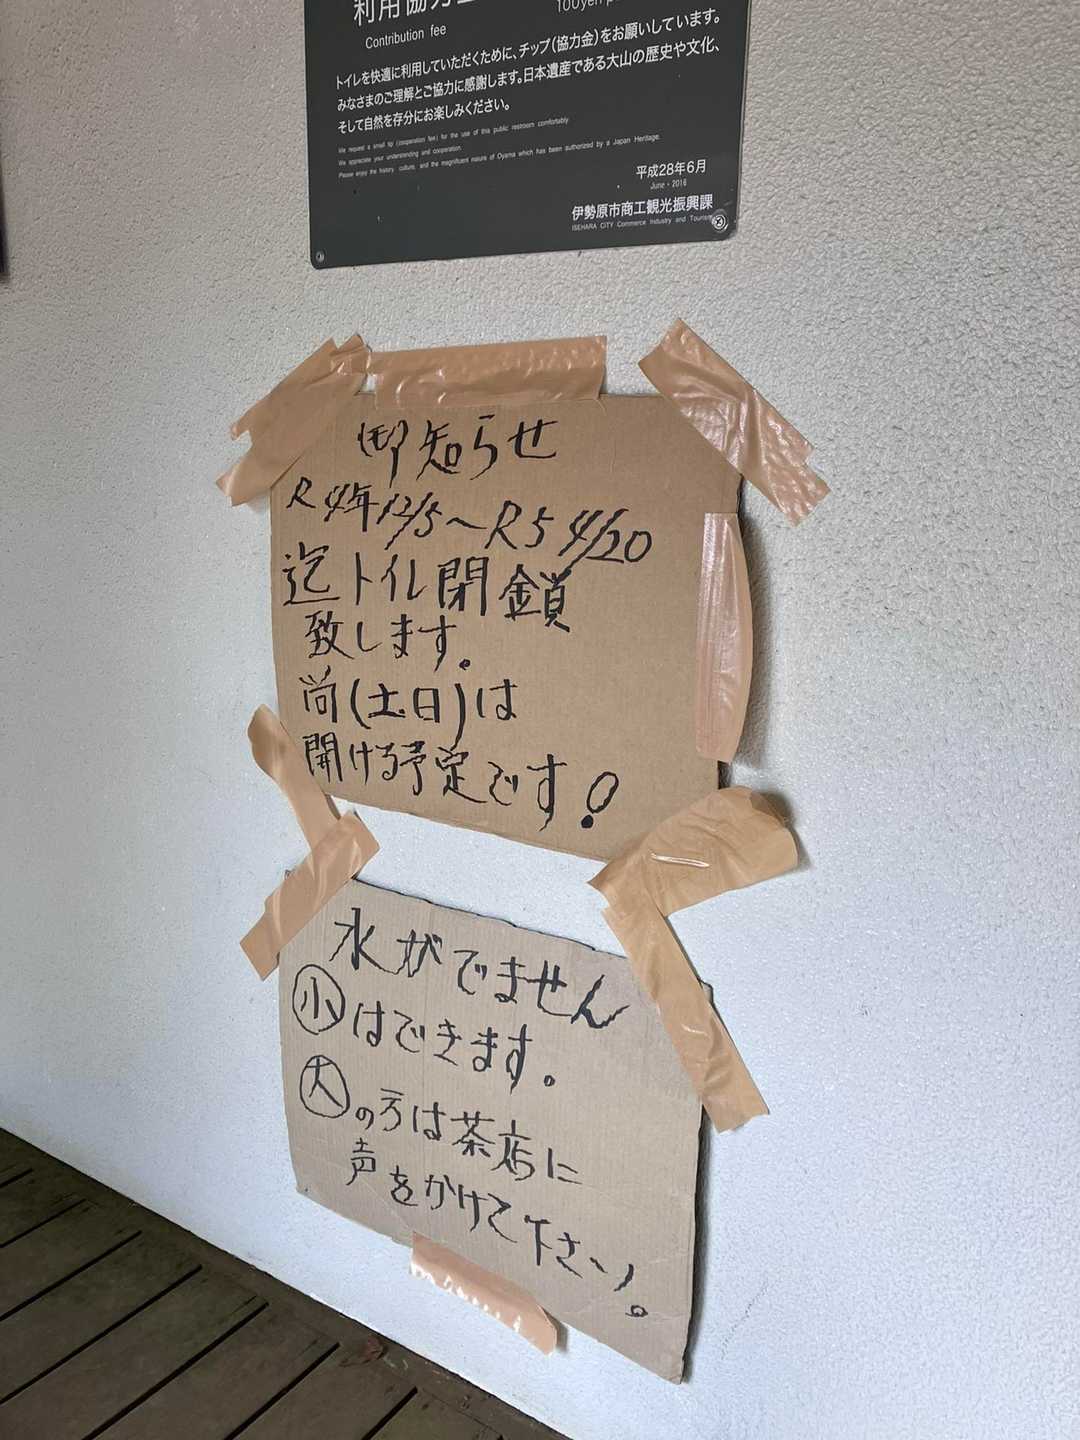 利用協力金
Contribution fee
100yen
トイレを快適に利用していただくために、チップ(協力金)をお願いしています。
みなさまのご理解とご協力に感謝します。日本遺産である大山の歴史や文化、
そして自然を存分にお楽しみください。
We request a small tip (cooperation fee) for the use of this public restroom comfortably.
We appreciate your understanding and cooperation.
Please enjoy the history, culture, and the magnificent nature of Oyama which has been authorized by a Japan Heritage.
平成28年6月
June・2016
伊勢原市商工観光振興課
ISEHARA CITY Commerce Industry and Tourism
御知らせ
R4年12/5〜R5 4/20
迄トイレ閉鎖
致します。
尚(土日)は
開ける予定です!
水がでません
小はできます。
大の方は茶店に
声をかけて下さい。